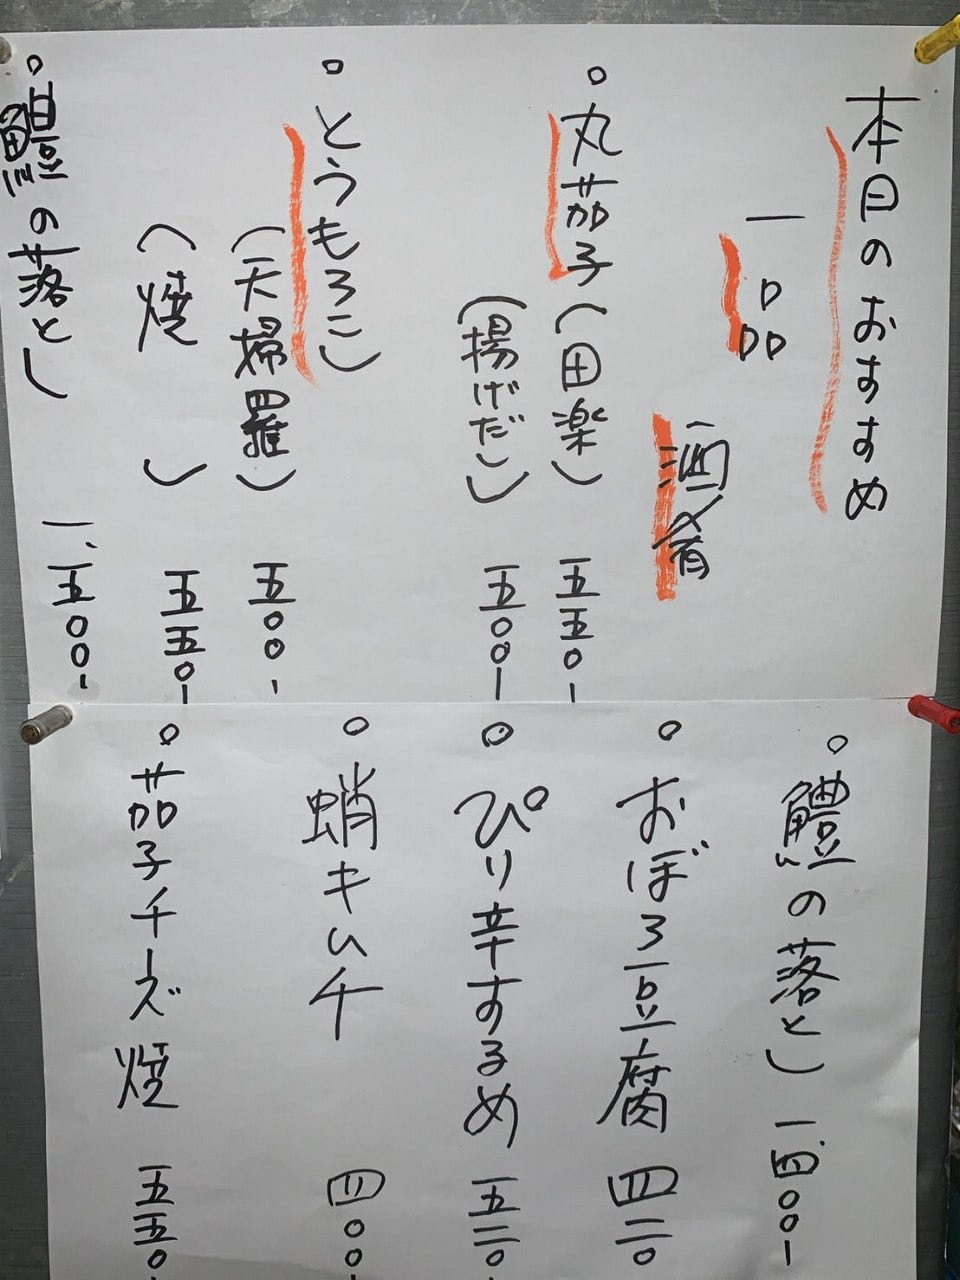 本日のおすすめ
一品
酒肴
○丸茄子(田楽)五五〇-
(揚げだし)五〇〇-
○とうもろこし
(天婦羅)五〇〇-
(焼)五五〇-
○鱧の落とし 一、五〇〇-
○鱧の落とし 一、四〇〇-
○おぼろ豆腐 四二〇
○ぴり辛するめ 五二〇-
○蛸キムチ 四〇〇-
○茄子チーズ焼 五五〇-